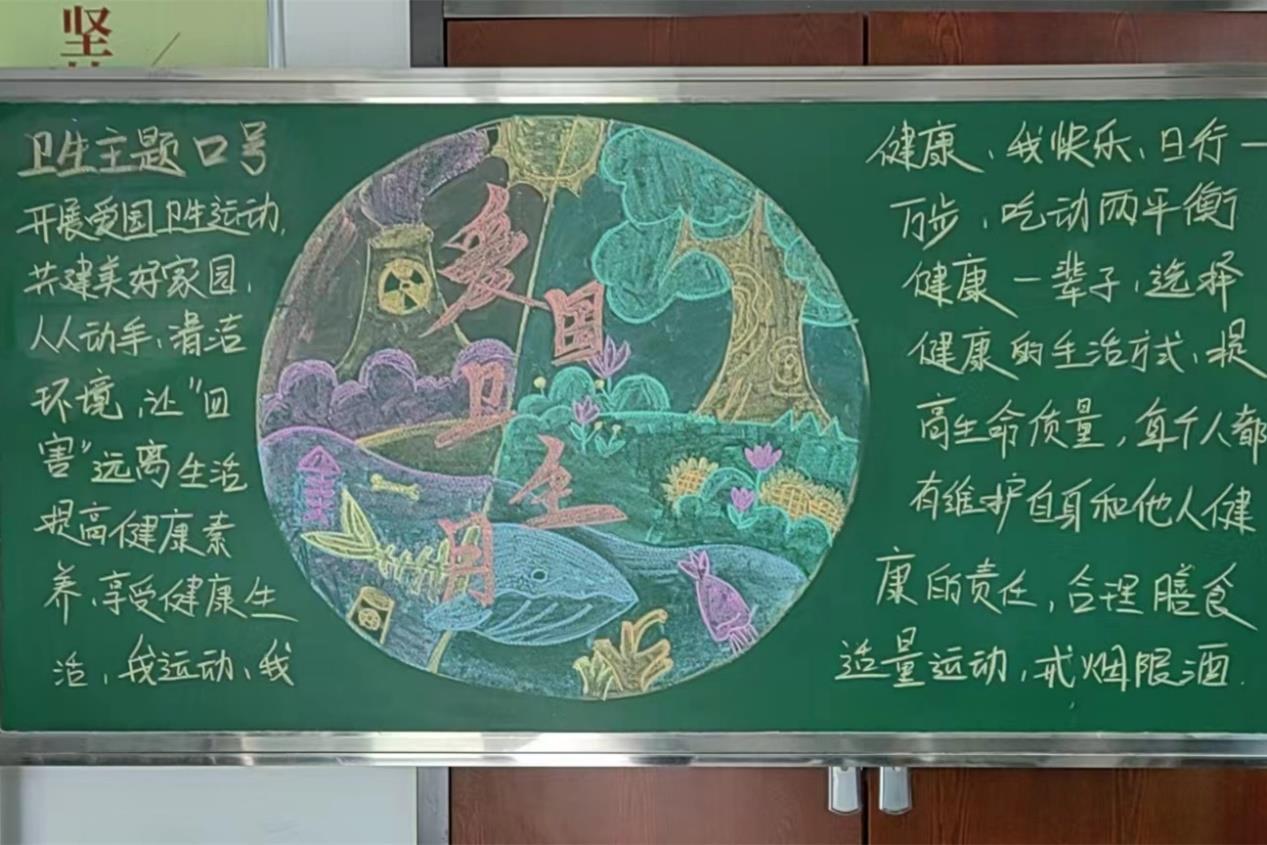 坚
卫生主题口号
开展爱国卫生运动,
共建美好家园,
人人动手、清洁
环境,让"四
害"远离生活
提高健康素
养,享受健康生
活,我运动、我
爱国卫生月
健康、我快乐、日行一
万步,吃动两平衡
健康一辈子,选择
健康的生活方式、提
高生命质量,每个人都
有维护自身和他人健
康的责任,合理膳食
适量运动,戒烟限酒.